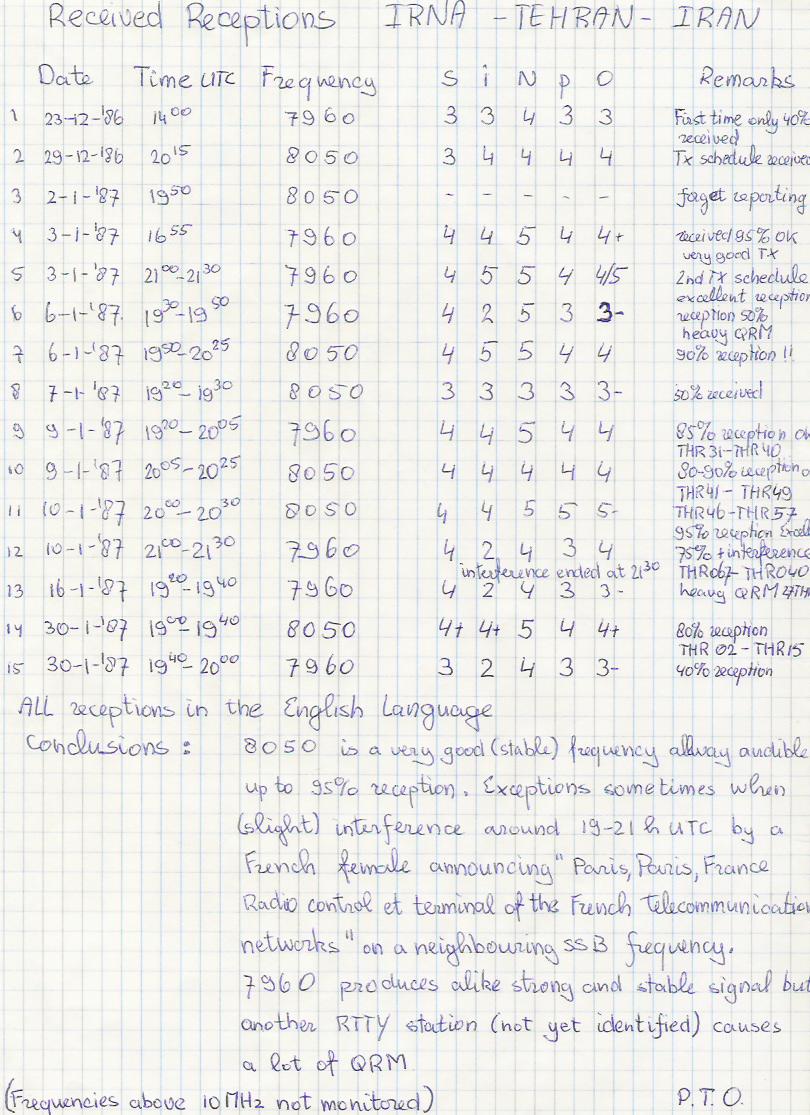 Received Receptions IRNA - TEHRAN - IRAN
Date Time UTC Frequency S i N p O Remarks
1 23-12-'86 14⁰⁰ 7960 3 3 4 3 3 First time only 40%
received
2 29-12-'86 20¹⁵ 8050 3 4 4 4 4 Tx schedule received
3 2-1-'87 19⁵⁰ 8050 - - - - - forget reporting
4 3-1-'87 16⁵⁵ 7960 4 4 5 4 4+ received 95% OK
very good TX
5 3-1-'87 21⁰⁰-21³⁰ 7960 4 5 5 4 4/5 2nd TX schedule
excellent reception
6 6-1-'87. 19³⁰-19⁵⁰ 7960 4 2 5 3 3- reception 50%
heavy QRM
7 6-1-'87 19⁵⁰-20²⁵ 8050 4 5 5 4 4 90% reception !!
8 7-1-'87 19²⁰-19³⁰ 8050 3 3 3 3 3- 50% received
9 9-1-'87 19²⁰-20⁰⁵ 7960 4 4 5 4 4 85% reception
THR31-THR40
10 9-1-'87 20⁰⁵-20²⁵ 8050 4 4 4 4 4 80-90% reception
THR41-THR49
11 10-1-'87 20⁰⁰-20³⁰ 8050 4 4 5 5 5- THR46-THR57
95% reception
12 10-1-'87 21⁰⁰-21³⁰ 7960 4 2 4 3 4 75% + interference
interference ended at 21³⁰ THR067-THR040
13 16-1-'87 19²⁰-19⁴⁰ 7960 4 2 4 3 3- heavy QRM
14 30-1-'87 19⁰⁰-19⁴⁰ 8050 4+ 4+ 5 4 4+ 80% reception
THR 02-THR15
15 30-1-'87 19⁴⁰-20⁰⁰ 7960 3 2 4 3 3- 40% reception
ALL receptions in the English Language
Conclusions : 8050 is a very good (stable) frequency allway audible
up to 95% reception. Exceptions sometimes when
(slight) interference around 19-21 h UTC by a
French female announcing "Paris, Paris, France
Radio control et terminal of the French Telecommunication
networks" on a neighbouring SSB frequency.
7960 produces alike strong and stable signal but
another RTTY station (not yet identified) causes
a lot of QRM
(Frequencies above 10 MHz not monitored) P.T.O.